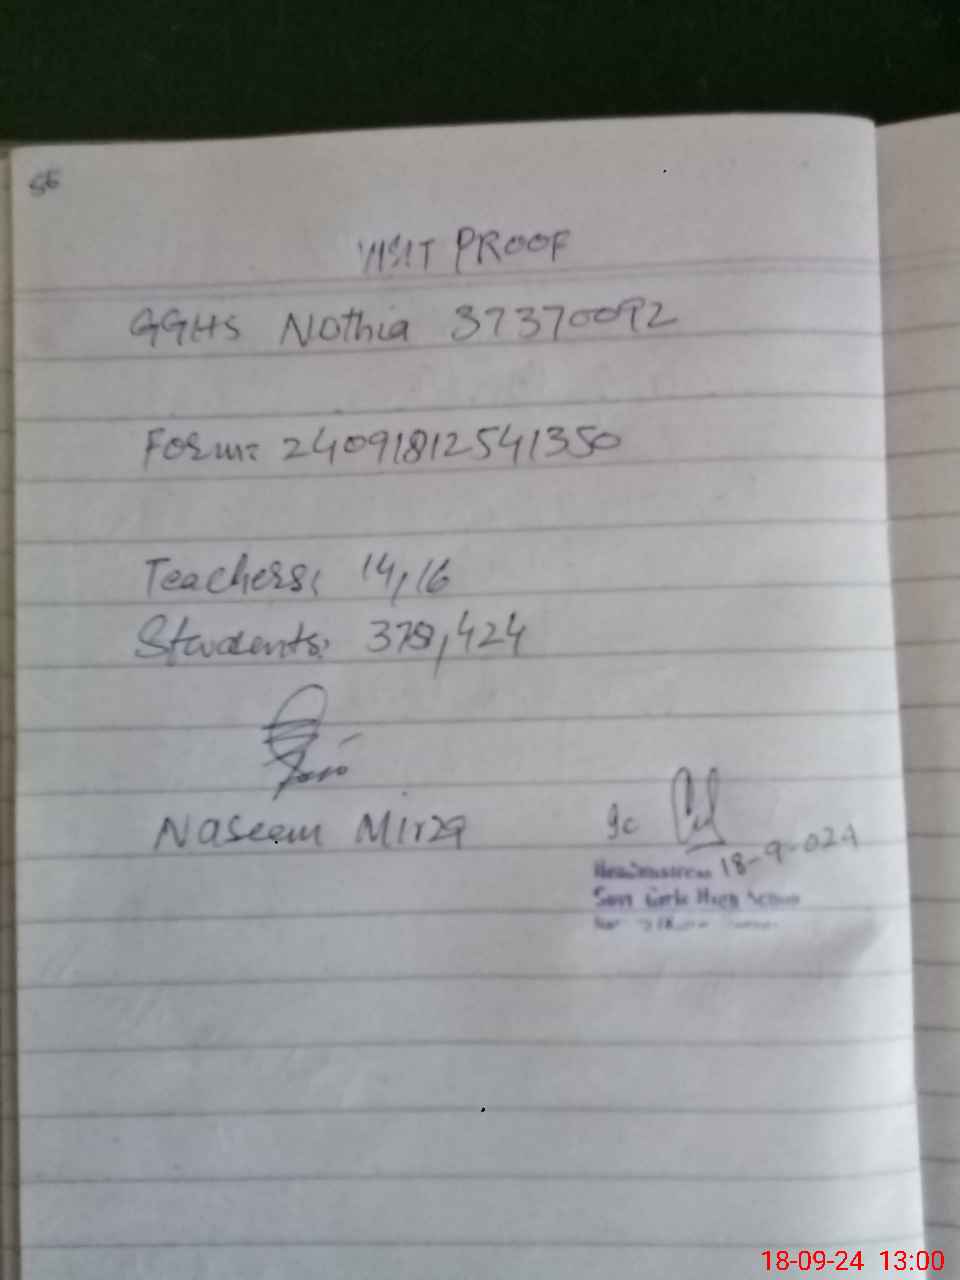 56
VISIT PROOF
GGHS Nothia 37370092
Form: 24091812541350
Teachers: 14,16
Students: 378,424
Naseem Mirza
Ic
18-9-024
Headmistress
Govt Girls High School
18-09-24 13:00